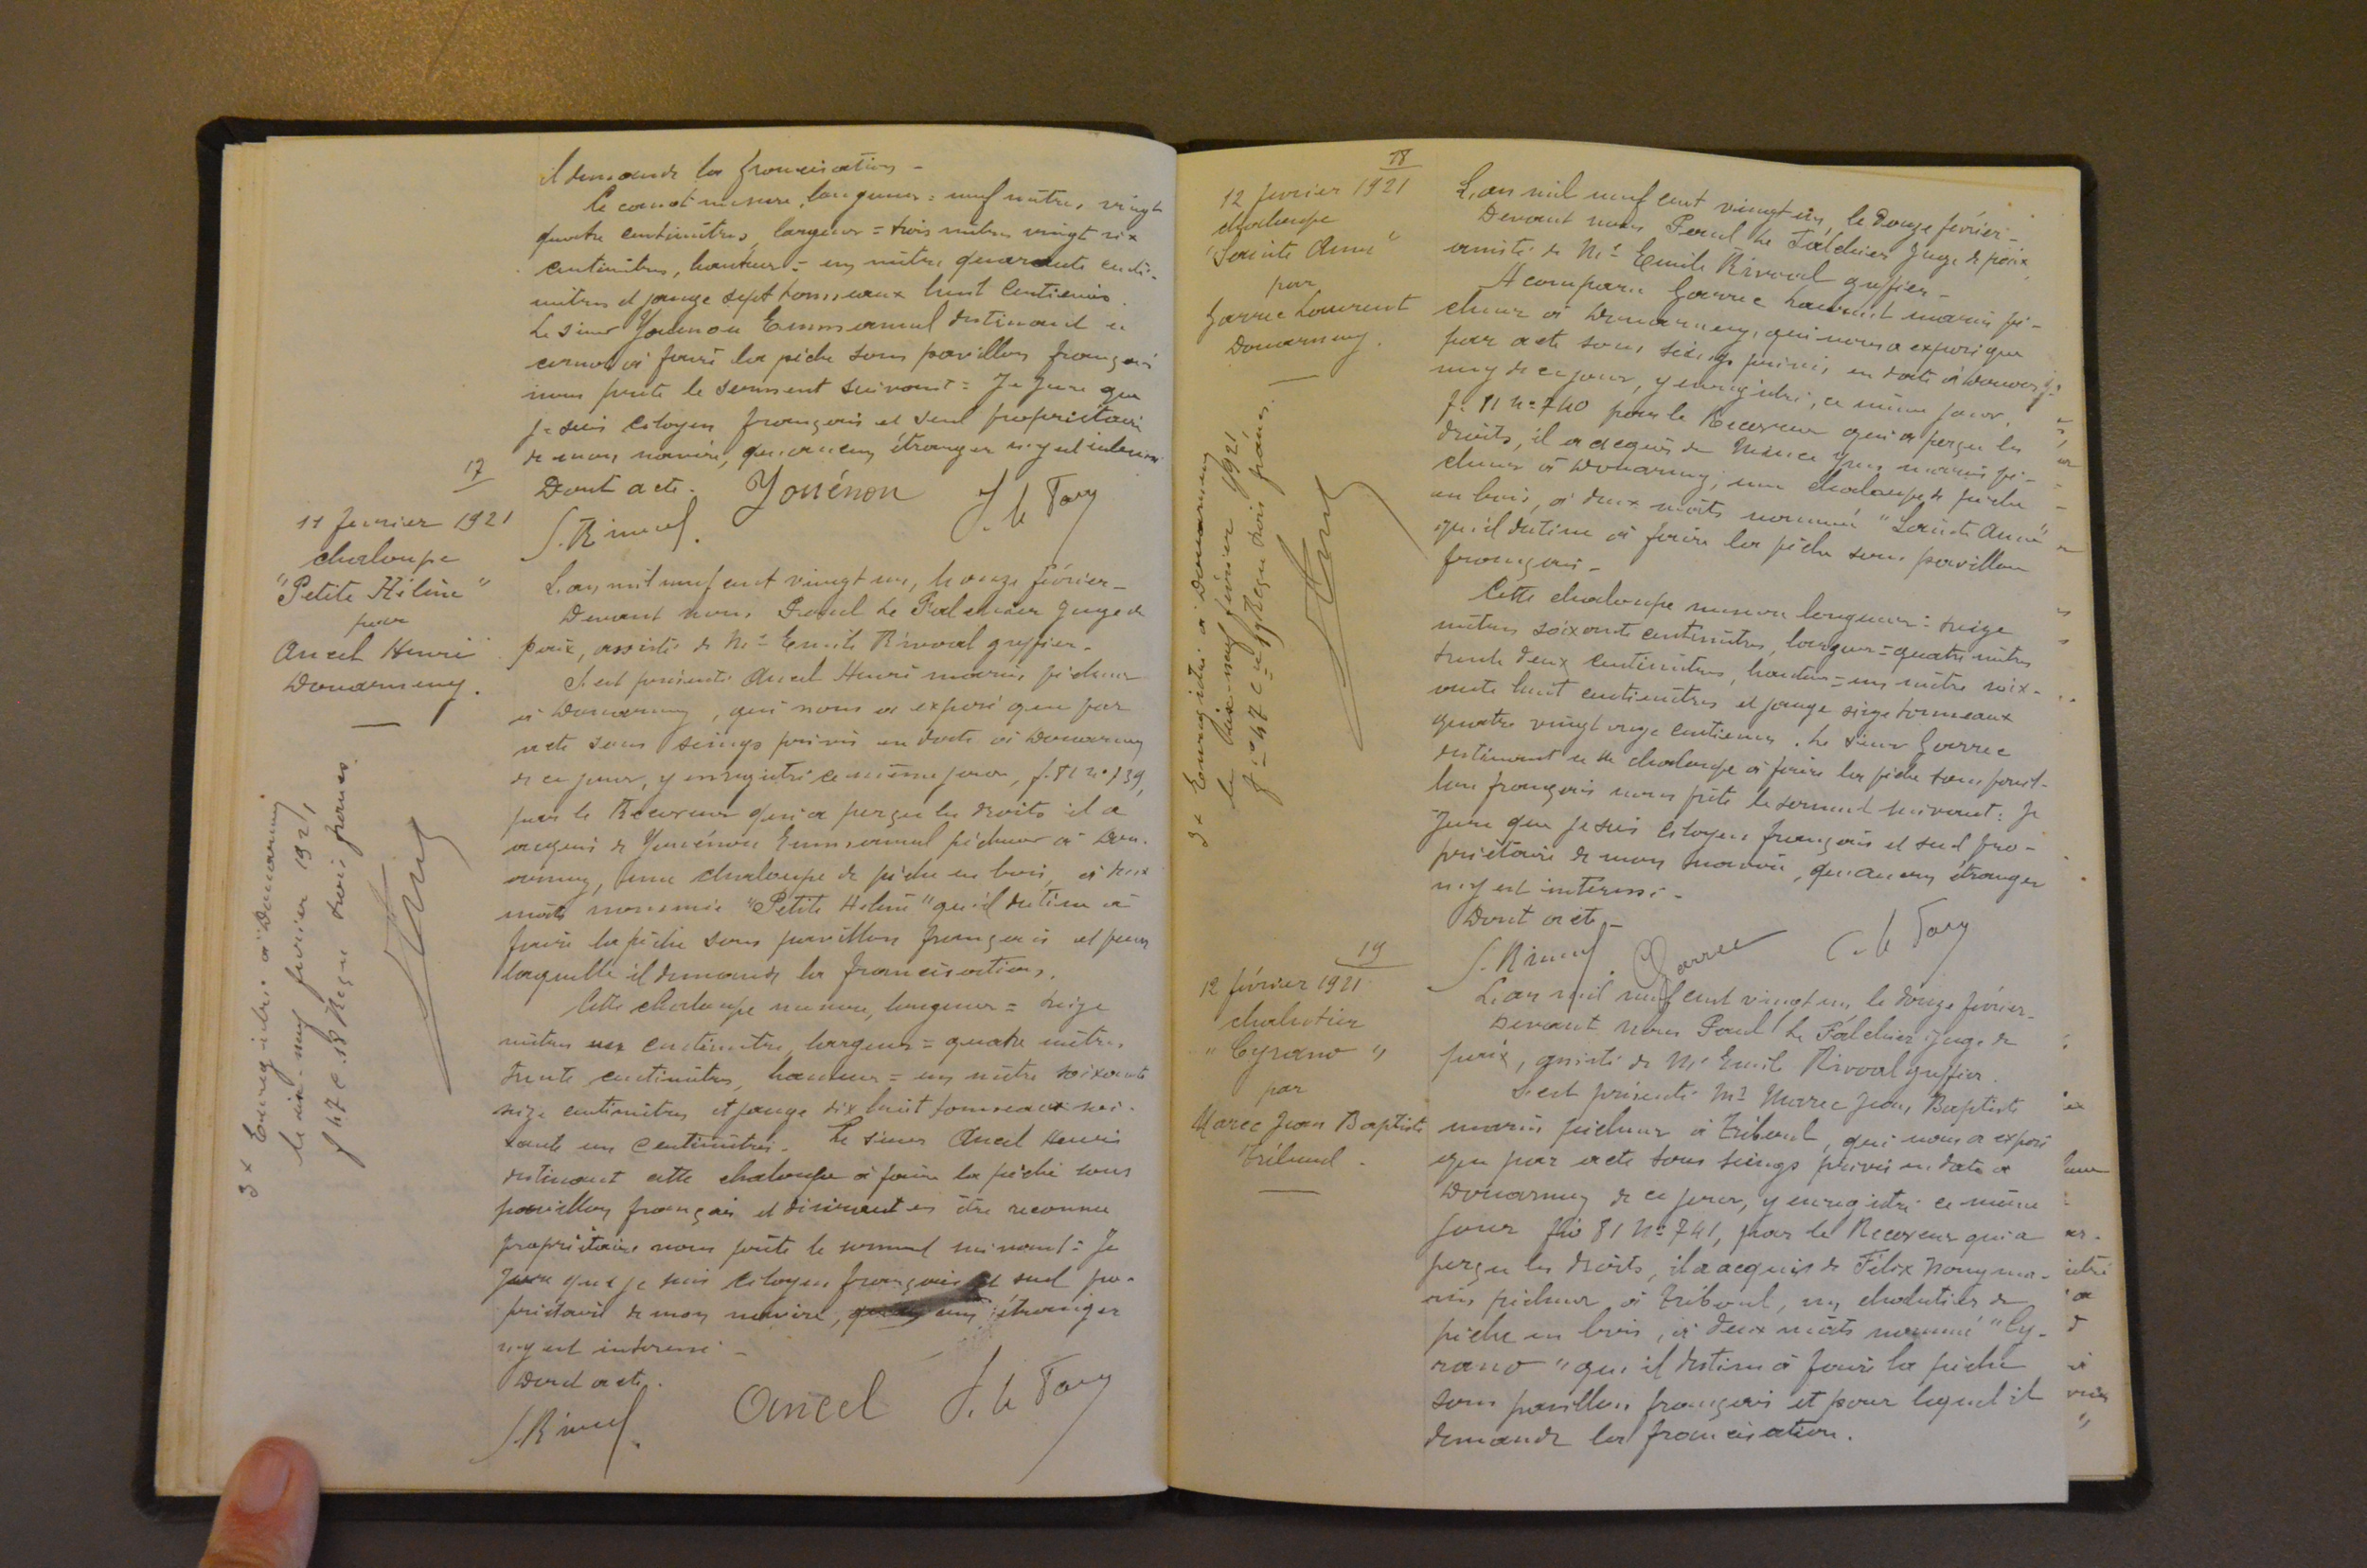 il demande la francisation -
Le canot mesure, longueur = neuf mètres vingt
quatre centimètres, largeur = trois mètres vingt six
centimètres, hauteur = un mètre quarante centi-
mètres et jauge sept tonneaux huit centièmes.
Le sieur Youénou Emmanuel destinant ce
canot à faire la pêche sous pavillon français
nous prête le serment suivant = Je jure que
je suis citoyen français et seul propriétaire
de mon navire, qu'aucun étranger n'y est intéressé
Dont acte.
Youénou
17
11 février 1921
chaloupe
"Petite Hélène"
par
Ancel Henri
Douarnenez.
L'an mil neuf cent vingt un, le onze février -
Devant nous Paul Le Falchier Juge de
paix, assisté de Me Emile Rivoal greffier -
S'est présenté Ancel Henri marin pêcheur
à Douarnenez, qui nous a exposé que par
acte sous seings privés en date à Douarnenez
de ce jour, y enregistré ce même jour, f. 81 n° 739,
par le Receveur qui a perçu les droits il a
acquis de Youénou Emmanuel pêcheur à Dou-
arnenez, une chaloupe de pêche en bois, à deux
mâts nommée "Petite Hélène" qu'il destine à
faire la pêche sous pavillon français et pour
laquelle il demande la francisation.
Cette chaloupe mesure, longueur = treize
mètres un centimètre, largeur = quatre mètres
trente centimètres, hauteur = un mètre soixante
seize centimètres et jauge dix huit tonneaux soi-
xante un centimètres. Le sieur Ancel Henri
destinant cette chaloupe à faire la pêche sous
pavillon français et désirant en être reconnu
propriétaire nous prête le serment suivant = Je
jure que je suis citoyen français et seul pro-
priétaire de mon navire, étranger
n'y est intéressé -
Dont acte.
Ancel
3x Enregistré à Douarnenez
le dix-neuf février 1921,
f 47 c. 18 Reçu trois francs
18
12 février 1921
chaloupe
"Sainte Anne"
par
Garrec Laurent
Douarnenez.
L'an mil neuf cent vingt un, le Douze février -
Devant nous Paul Le Falchier Juge de paix
assisté de Me Emile Rivoal greffier -
A comparu Garrec Laurent marin pê-
cheur à Douarnenez, qui nous a exposé que
par acte sous seings privés en date à Douarne-
nez de ce jour, y enregistré, ce même jour,
f° 81 n° 740 par le Receveur qui a perçu les
droits, il a acquis de Yves marin pê-
cheur à Douarnenez, une chaloupe de pêche
en bois, à deux mâts nommée "Sainte Anne"
qu'il destine à faire la pêche sous pavillon
français -
Cette chaloupe mesure longueur = treize
mètres soixante centimètres, largeur = quatre mètres
trente deux centimètres, hauteur = un mètre soix-
ante huit centimètres et jauge seize tonneaux
quatre vingt onze centièmes. Le sieur Garrec
destinant sa dite chaloupe à faire la pêche sous pavil-
lon français nous prête le serment suivant : Je
jure que je suis citoyen français et seul pro-
priétaire de mon navire, qu'aucun étranger
n'y est intéressé -
Dont acte -
Garrec
3x Enregistré à Douarnenez
le dix-neuf février 1921
f° 47 c. Reçu trois francs
19
12 février 1921
chalutier
"Cyrano"
par
Marec Jean Baptiste
Tréboul.
L'an mil neuf cent vingt un, le douze février -
Devant nous Paul Le Falchier Juge de
paix, assisté de Me Emile Rivoal greffier.
S'est présenté Mr Marec Jean Baptiste
marin pêcheur à Tréboul, qui nous a exposé
que par acte sous seings privés en date à
Douarnenez de ce jour, y enregistré ce même
jour f° 81 N° 741, par le Receveur qui a
perçu les droits, il a acquis de Félix ma-
rin pêcheur à Tréboul, un chalutier de
pêche en bois, à deux mâts nommé "Cy-
rano" qu'il destine à faire la pêche
sous pavillon français et pour lequel il
demande la francisation.